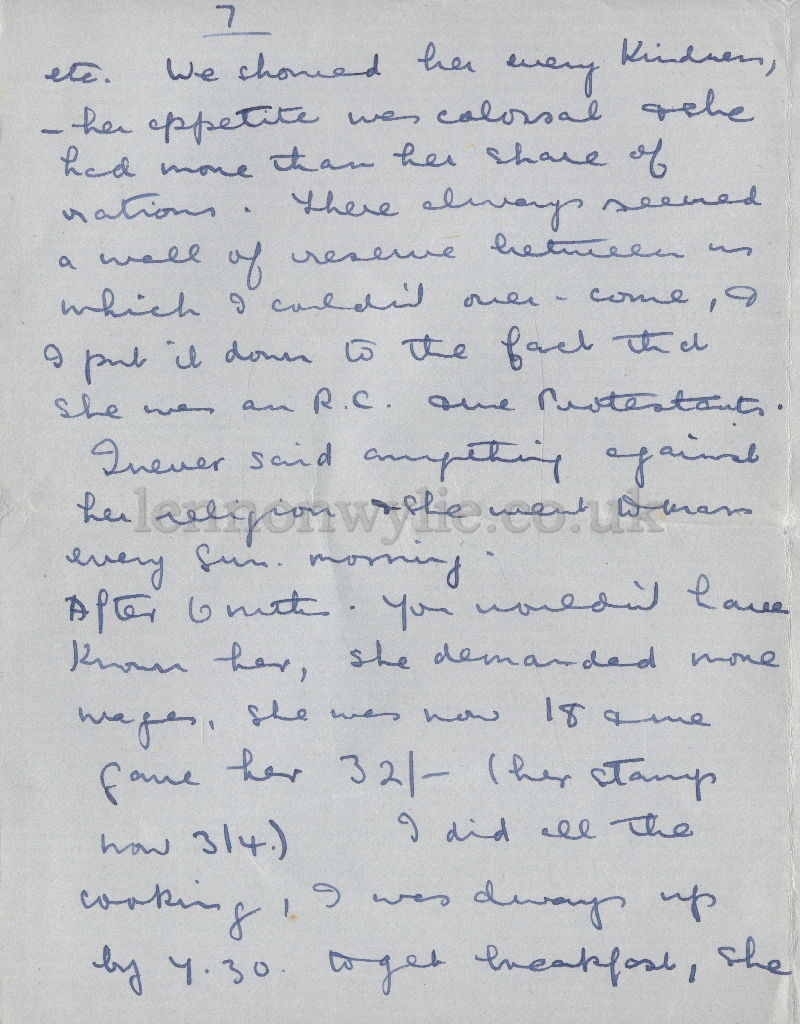 7
etc. We showed her every Kindness,
- her appetite was colossal & she
had more than her share of
rations. There always seemed
a wall of reserve between us
which I couldn't over-come, &
I put it down to the fact that
she was an R.C. & we Protestants.
I never said anything against
her religion & she went to mass
every Sun. morning.
After 6 mths. You wouldn't have
Known her, she demanded more
wages, she was now 18 & we
gave her 32/- (her stamp
now 3/4.) I did all the
cooking, I was always up
by 7.30. to get breakfast, She
lennonwylie.co.uk